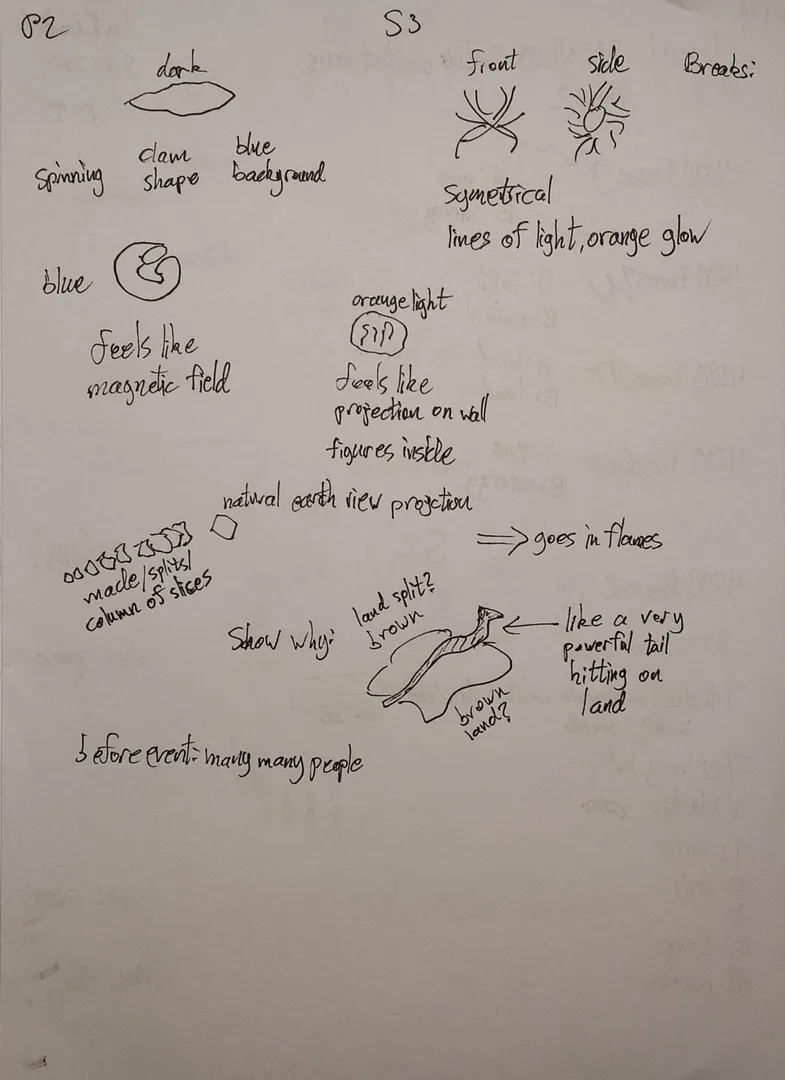 P2
S3
dark
spinning
clam
shape
blue
background
front
side
Breaks:
Symetrical
lines of light, orange glow
blue
feels like
magnetic field
orange light
feels like
projection on wall
figures inside
natural earth view projection
made/splits/
column of slices
⇒ goes in flames
Show why:
land split?
brown
brown
land?
← like a very
powerful tail
hitting on
land
before event: many many people